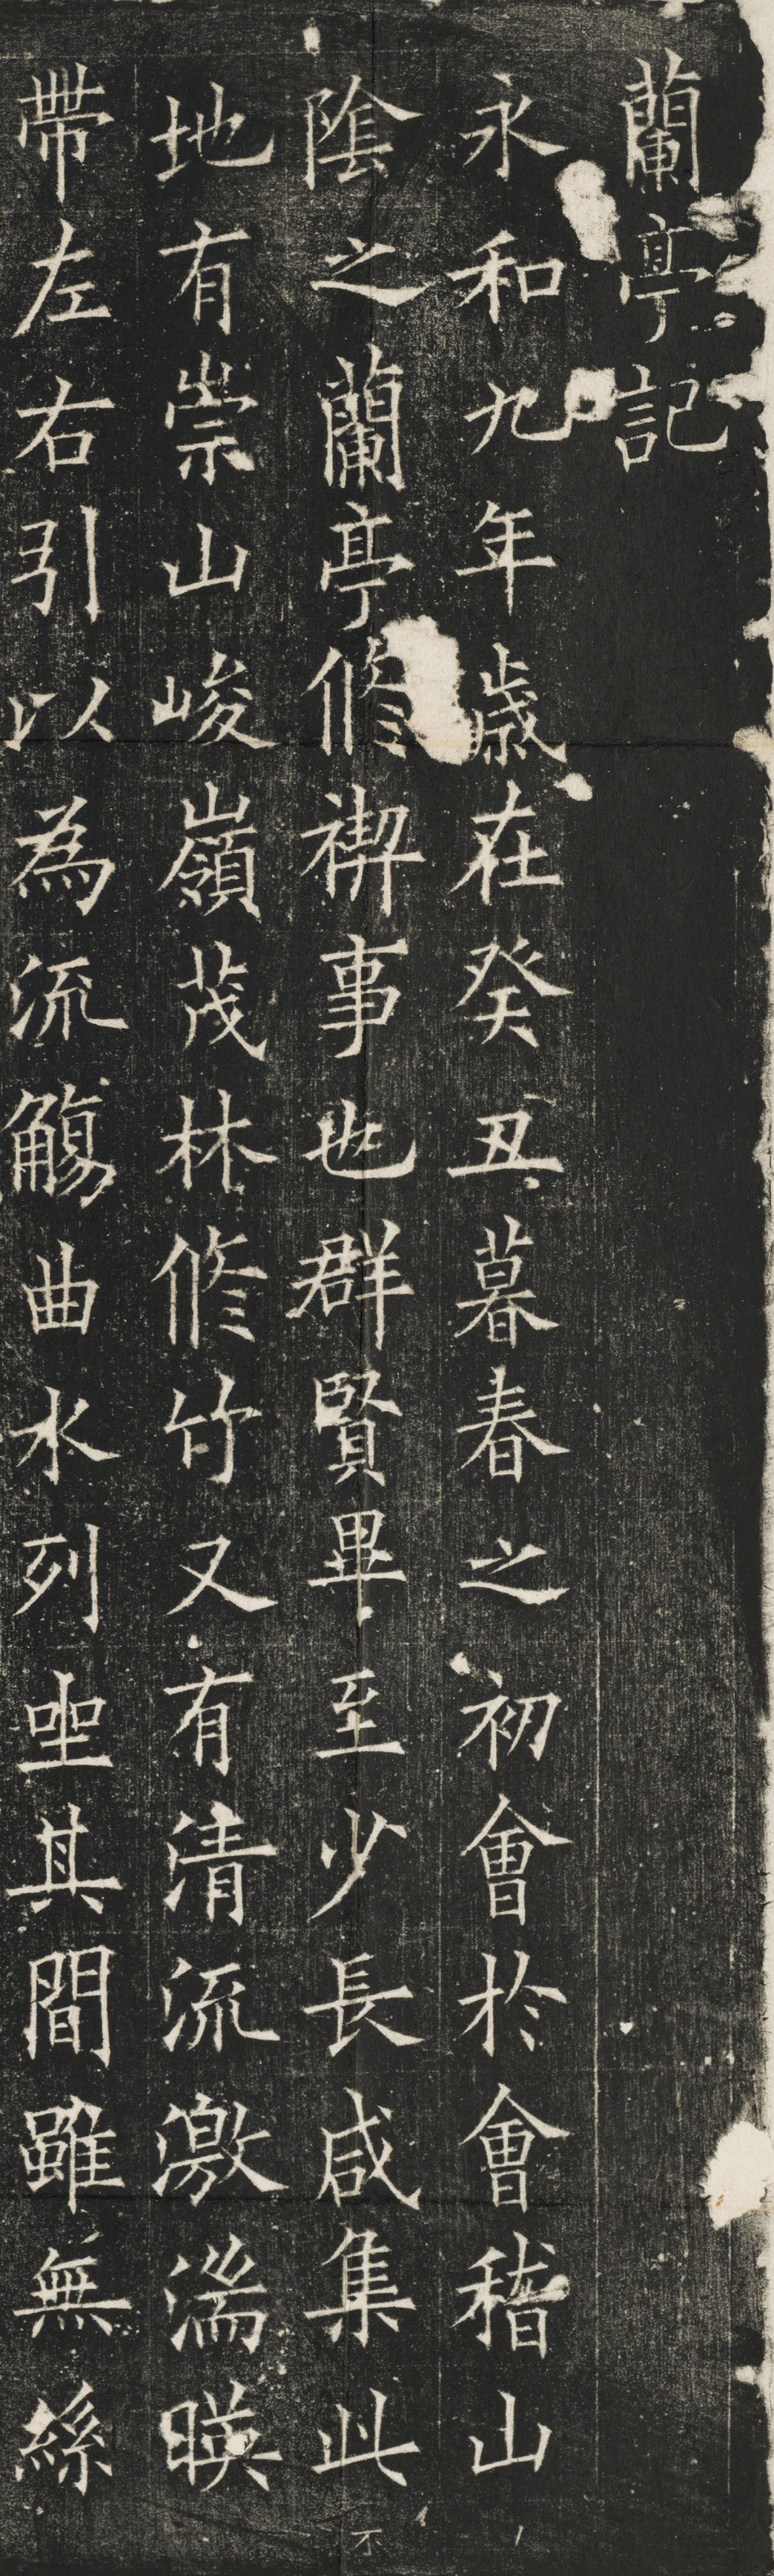 蘭亭記
永和九年歳在癸丑暮春之初會於會稽山
陰之蘭亭脩禊事也群賢畢至少長咸集此
地有崇山峻嶺茂林脩竹又有清流激湍暎
帶左右引以為流觴曲水列坐其間雖無絲
不